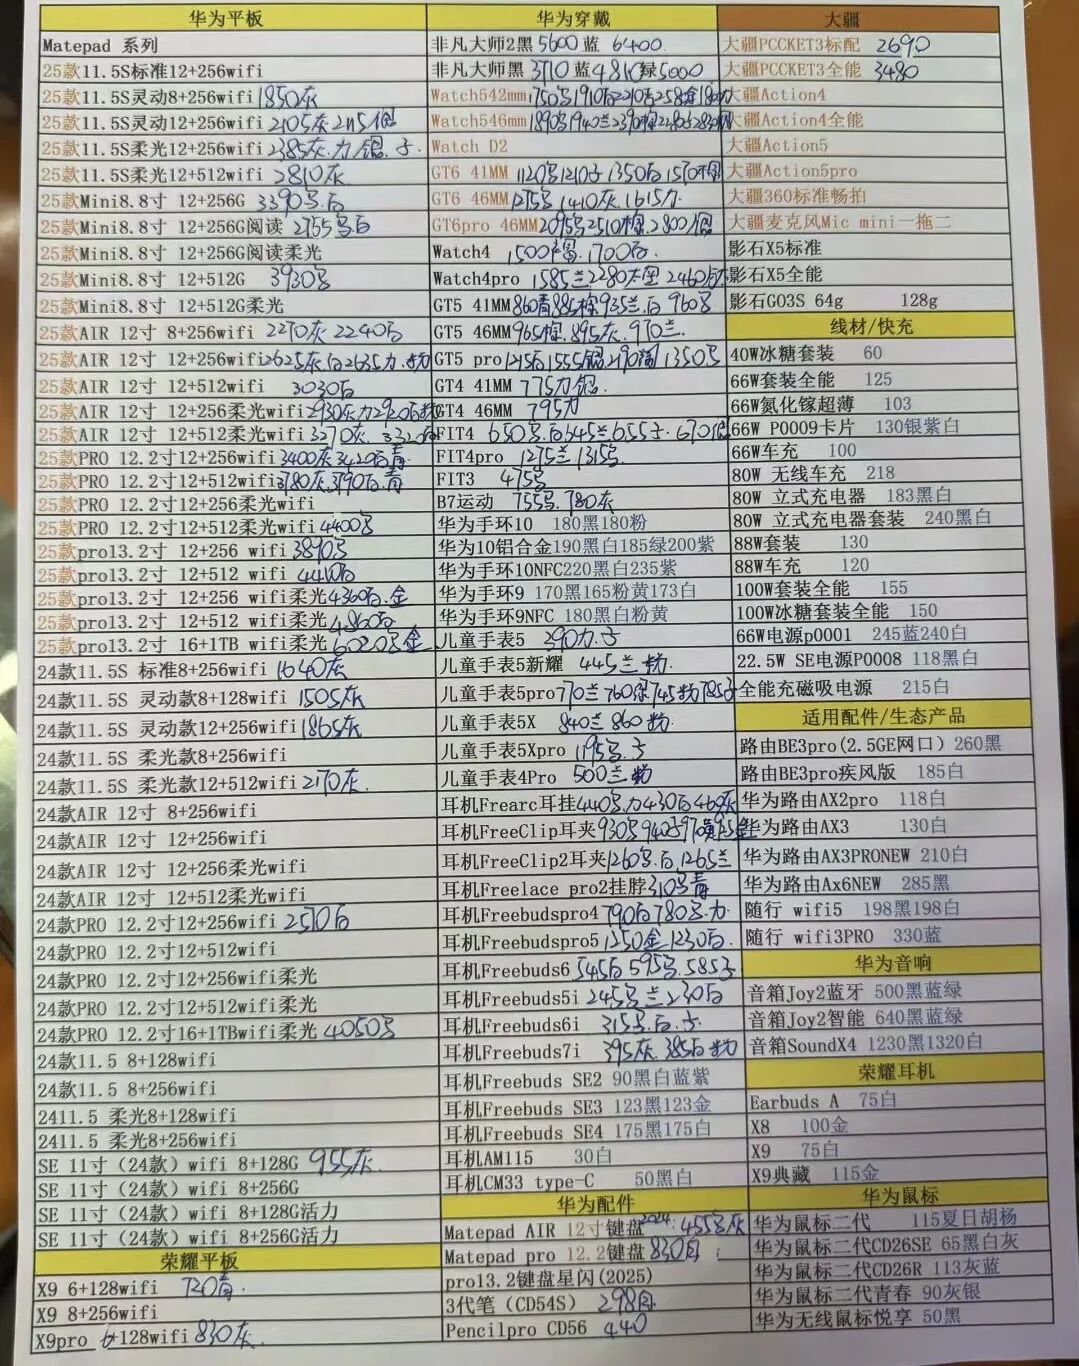 华为平板
Matepad 系列
25款11.5S标准12+256wifi
25款11.5S灵动8+256wifi 1850灰
25款11.5S灵动12+256wifi 2105灰 2115银
25款11.5S柔光12+256wifi 2385灰.力 银.子
25款11.5S柔光12+512wifi 2810灰
25款Mini8.8寸 12+256G 3390号.白
25款Mini8.8寸 12+256G阅读 2755号白
25款Mini8.8寸 12+256G阅读柔光
25款Mini8.8寸 12+512G 3930号
25款Mini8.8寸 12+512G柔光
25款AIR 12寸 8+256wifi 2270灰 2240白
25款AIR 12寸 12+256wifi 2625灰白2635力.粉
25款AIR 12寸 12+512wifi 3030白
25款AIR 12寸 12+256柔光wifi 2930灰力2920白粉
25款AIR 12寸 12+512柔光wifi 3370灰. 3320白
25款PRO 12.2寸 12+256wifi 3400灰3420白青
25款PRO 12.2寸 12+512wifi 3780灰.3790白.青
25款PRO 12.2寸 12+256柔光wifi
25款PRO 12.2寸 12+512柔光wifi 4400号
25款pro13.2寸 12+256 wifi 3890号
25款pro13.2寸 12+512 wifi 4410白
25款pro13.2寸 12+256 wifi柔光 4360白.金
25款pro13.2寸 12+512 wifi柔光 4860白
25款pro13.2寸 16+1TB wifi柔光 6020号金
24款11.5S 标准8+256wifi 1640灰
24款11.5S 灵动款8+128wifi 1505灰
24款11.5S 灵动款12+256wifi 1865灰
24款11.5S 柔光款8+256wifi
24款11.5S 柔光款12+512wifi 2170灰.
24款AIR 12寸 8+256wifi
24款AIR 12寸 12+256wifi
24款AIR 12寸 12+256柔光wifi
24款AIR 12寸 12+512柔光wifi
24款PRO 12.2寸12+256wifi 2570白
24款PRO 12.2寸12+512wifi
24款PRO 12.2寸12+256wifi柔光
24款PRO 12.2寸12+512wifi柔光
24款PRO 12.2寸16+1TBwifi柔光 4050号
24款11.5 8+128wifi
24款11.5 8+256wifi
2411.5 柔光8+128wifi
2411.5 柔光8+256wifi
SE 11寸（24款）wifi 8+128G 955灰.
SE 11寸（24款）wifi 8+256G
SE 11寸（24款）wifi 8+128G活力
SE 11寸（24款）wifi 8+256G活力
荣耀平板
X9 6+128wifi 720青.
X9 8+256wifi
X9pro 6+128wifi 830灰.
华为穿戴
非凡大师2黑 5600 蓝 6400
非凡大师黑 3710 蓝4810绿5000
Watch542mm
Watch546mm
Watch D2
GT6 41MM 1120号1210子1350白
GT6 46MM 1275号 1410灰.1615力.
GT6pro 46MM 2095号2510棕.2800银
Watch4 1500棕. 1700白.
Watch4pro 1585兰2280
GT5 41MM 860青885棕935兰.白 960号
GT5 46MM 965棕.895灰.970兰.
GT5 pro 1245白1555银2190陶 1350号
GT4 41MM 775力银.
GT4 46MM 795力
FIT4 650号.白645兰655子.670银
FIT4pro 1275兰1315号.
FIT3 475号
B7运动 755号.780灰
华为手环10 180黑180粉
华为10铝合金190黑白185绿200紫
华为手环10NFC220黑白235紫
华为手环9 170黑165粉黄173白
华为手环9NFC 180黑白粉黄
儿童手表5 390力.子
儿童手表5新耀 445兰粉.
儿童手表5pro 770兰760深745粉785子
儿童手表5X 840兰 860粉.
儿童手表5Xpro 1195号.子
儿童手表4Pro 500兰粉
耳机Frearc耳挂440号.力430白469灰
耳机FreeClip耳夹930号940子970黄
耳机FreeClip2耳夹1260号.白1265兰
耳机Freelace pro2挂脖310号青
耳机Freebudspro4 790白780号.力
耳机Freebudspro5 1250金1230白.
耳机Freebuds6 545白595号.585子
耳机Freebuds5i 245号兰230白
耳机Freebuds6i 315号.白.子.
耳机Freebuds7i 395灰.385白粉
耳机Freebuds SE2 90黑白蓝紫
耳机Freebuds SE3 123黑123金
耳机Freebuds SE4 175黑175白
耳机AM115 30白
耳机CM33 type-C 50黑白
华为配件
Matepad AIR 12寸键盘2024: 455号灰
Matepad pro 12.2键盘 830白.
pro13.2键盘星闪(2025)
3代笔（CD54S） 298白.
Pencilpro CD56 440
大疆
大疆PCCKET3标配 2690
大疆PCCKET3全能 3480
大疆Action4
大疆Action4全能
大疆Action5
大疆Action5pro
大疆360标准畅拍
大疆麦克风Mic mini一拖二
影石X5标准
影石X5全能
影石GO3S 64g 128g
线材/快充
40W冰糖套装 60
66W套装全能 125
66W氮化镓超薄 103
66W P0009卡片 130银紫白
66W车充 100
80W 无线车充 218
80W 立式充电器 183黑白
80W 立式充电器套装 240黑白
88W套装 130
88W车充 120
100W套装全能 155
100W冰糖套装全能 150
66W电源p0001 245蓝240白
22.5W SE电源P0008 118黑白
全能充磁吸电源 215白
适用配件/生态产品
路由BE3pro(2.5GE网口）260黑
路由BE3pro疾风版 185白
华为路由AX2pro 118白
华为路由AX3 130白
华为路由AX3PRONEW 210白
华为路由Ax6NEW 285黑
随行 wifi5 198黑198白
随行 wifi3PRO 330蓝
华为音响
音箱Joy2蓝牙 500黑蓝绿
音箱Joy2智能 640黑蓝绿
音箱SoundX4 1230黑1320白
荣耀耳机
Earbuds A 75白
X8 100金
X9 75白
X9典藏 115金
华为鼠标
华为鼠标二代 115夏日胡杨
华为鼠标二代CD26SE 65黑白灰
华为鼠标二代CD26R 113灰蓝
华为鼠标二代青春 90灰银
华为无线鼠标悦享 50黑